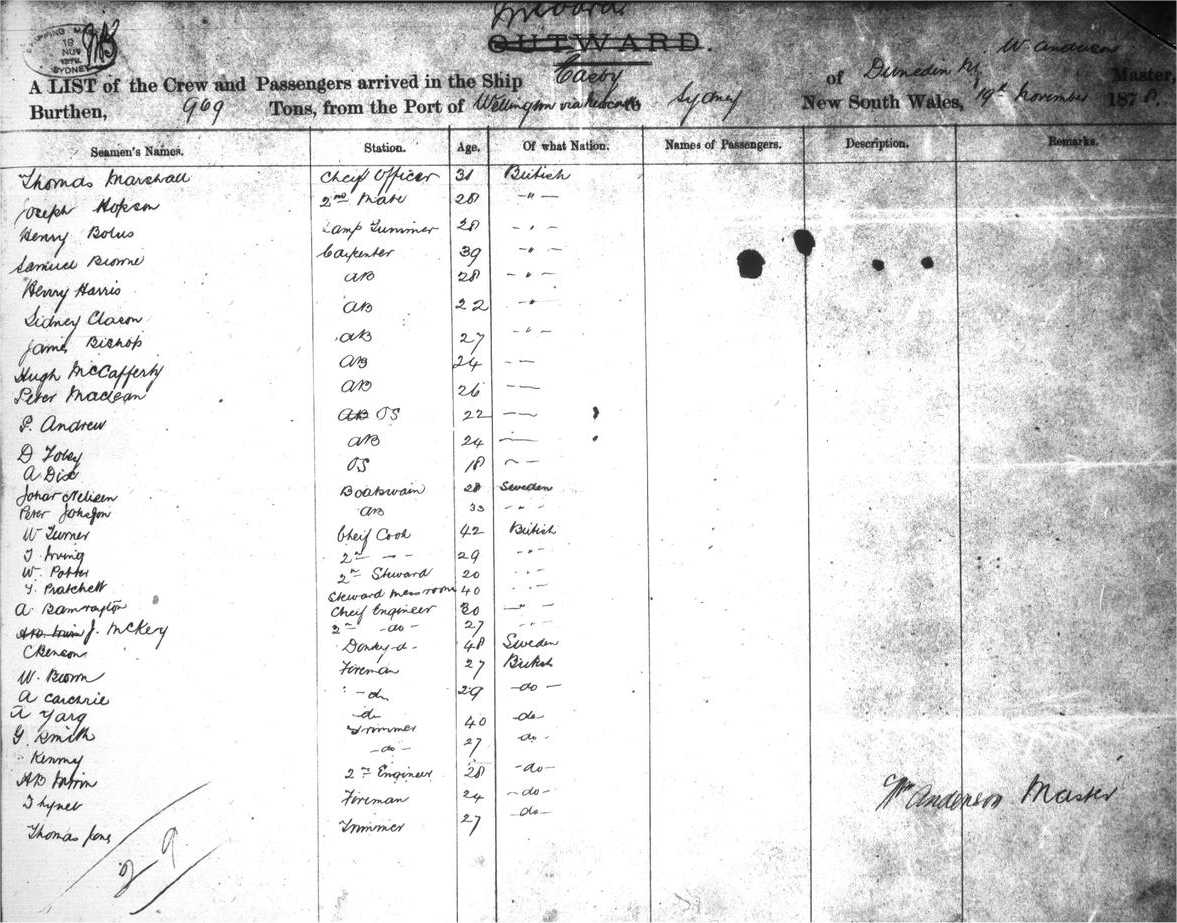 Inward.
OUTWARD.
SHIPPING MA
19
NOV
1878
SYDNEY
A LIST of the Crew and Passengers arrived in the Ship Easby of Dunedin W Anderson Master,
Burthen, 969 Tons, from the Port of Wellington via Newcastle to Sydney New South Wales, 19th November 1878.
Seamen's Names. Station. Age. Of what Nation. Names of Passengers. Description. Remarks.
Thomas Marshall Cheif Officer 31 British
Joseph Hopson 2nd Mate 28 - " -
Henry Bolus Lamp Trimmer 28 - " -
Samuel Browne Carpenter 39 - " -
Henry Harris AB 28 - " -
Sidney Clacon AB 22 - " -
James Bishop AB 27 - " -
Hugh McCafferty AB 24 - -
Peter Maclean AB 26 - -
P. Andrew AB OS 22 - -
D Foley AB 24 - -
A Dix OS 18 - -
Johan Nelisen Boatswain 28 Sweden
Peter Johnson AB 33 - " -
W Turner Cheif Cook 42 British
T Irving 2nd - - 29 - " -
W. Potter 2nd Steward 20 - " -
T. Pratchett Steward mess room 40 - " -
A Bamragton Cheif Engineer 30 - " -
J. McKery 2nd - do - 27 - " -
C Benson Donky-d- 48 Sweden
W. Brown Fireman 27 British
A Carchrie - do 29 - do -
A Yarg - do 40 - do
G Smith Trimmer 27 do -
Kenny - do -
AB Irwin 2nd Engineer 28 - do -
T Lynet Fireman 24 - do -
Thomas Jones Trimmer 27 - do -
29
Wm Anderson Master